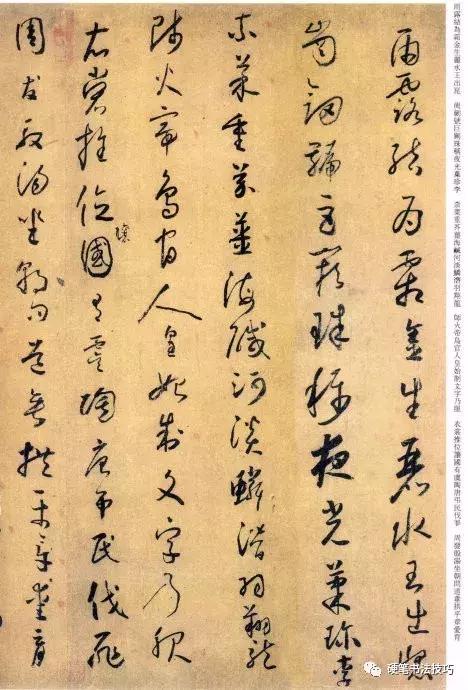 雨露結為霜金生麗水玉出崑　崗劍號巨闕珠稱夜光菓珍李　柰菜重芥薑海鹹河淡鱗潛羽翔龍　師火帝鳥官人皇始制文字乃服　衣裳推位讓國有虞陶唐弔民伐罪　周發殷湯坐朝問道垂拱平章愛育
雨露結為霜金生麗水玉出崑
崗劍號巨闕珠稱夜光菓珍李
柰菜重芥薑海鹹河淡鱗潛羽翔龍
師火帝鳥官人皇始制文字乃服
衣裳推位讓國有虞陶唐弔民伐罪
周發殷湯坐朝問道垂拱平章愛育
硬笔书法技巧